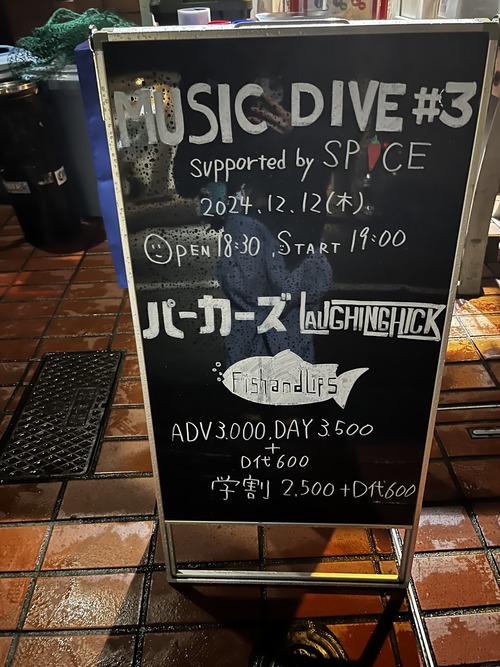 MUSIC DIVE #3
supported by SPICE
2024.12.12(木).
OPEN 18:30 , START 19:00
パーカーズ LAUGHINGHICK
FishandLips
ADV 3.000, DAY 3.500
+
D代 600
学割 2,500+D代600